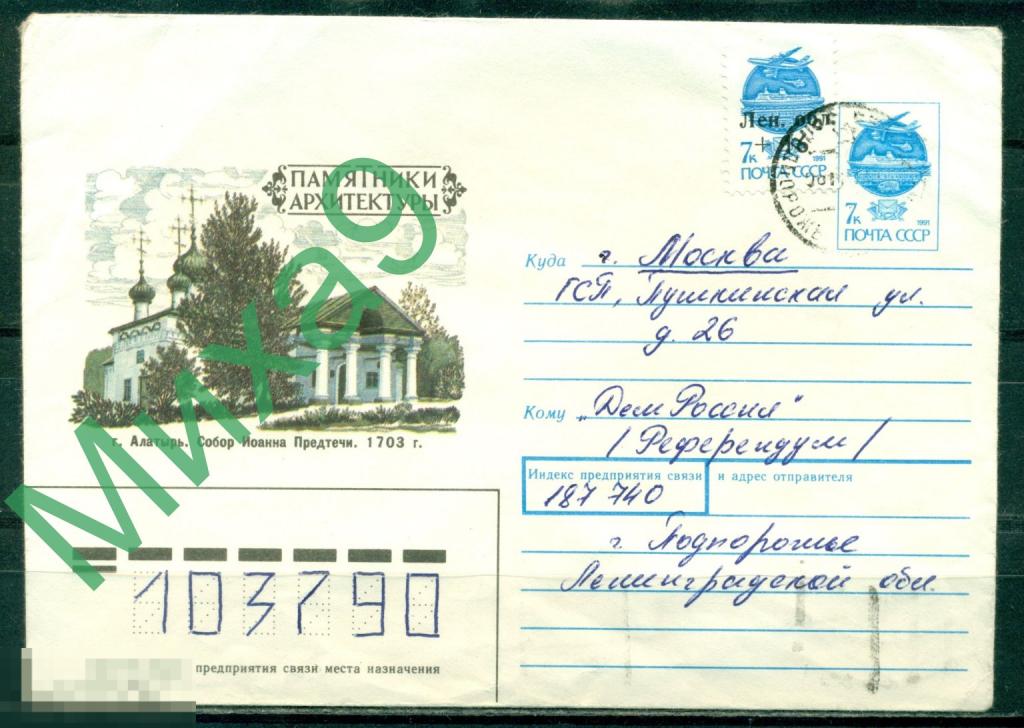 Лен. обл.
7к
1991
ПОЧТА СССР
7к
1991
ПОЧТА СССР
ПАМЯТНИКИ
АРХИТЕКТУРЫ
г. Алатырь. Собор Иоанна Предтечи. 1703 г.
Миха9
Куда г. Москва
ГСП, Пушкинская ул.
д. 26
Кому „Дем Россия"
/Референдум/
Индекс предприятия связи и адрес отправителя
187 740
г. Подпорожье
Ленинградской обл.
103790
предприятия связи места назначения